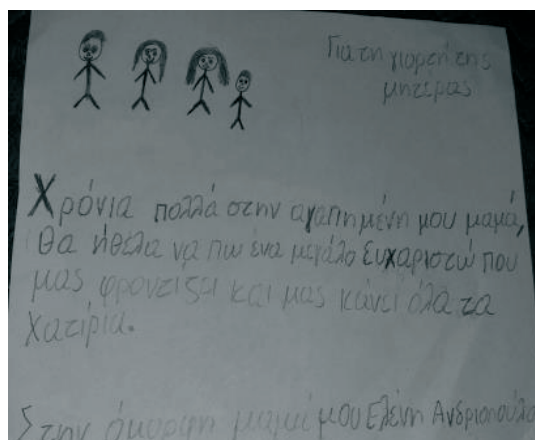 Για τη γιορτή της
μητέρας
Χρόνια πολλά στην αγαπημένη μου μαμά,
θα ήθελα να πω ένα μεγάλο ευχαριστώ που
μας φροντίζει και μας κάνει όλα τα
χατίρια.
Στην όμορφη μαμά μου Ελένη Ανδριοπούλο